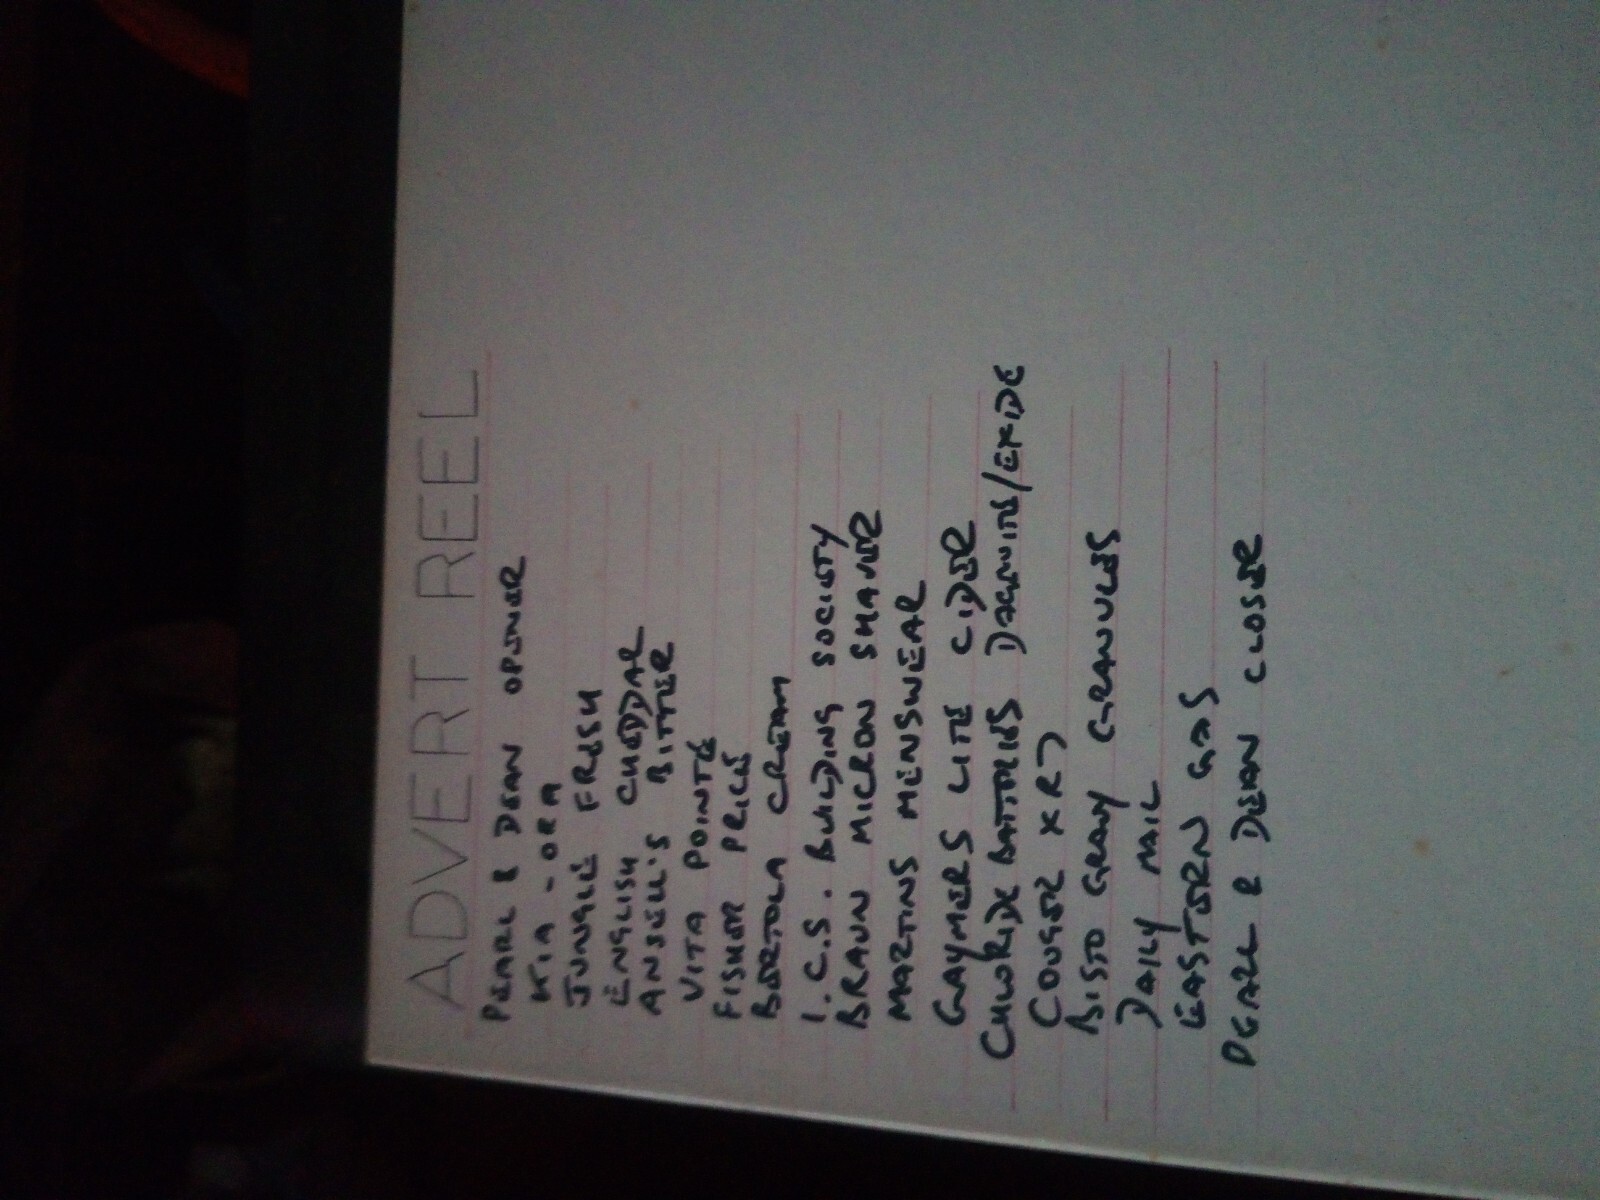 ADVERT REEL
PEARL & DEAN OPENER
KIA-ORA
JUNGLE FRESH
ENGLISH CHEDDAR
ANSELL'S BITTER
VITA POINTE
FISHER PRICE
BERTOLA CREAM
I.C.S. BUILDING SOCIETY
BRAUN MICRON SHAVER
MARTINS MENSWEAR
GAYMERS LITE CIDER
CHLORIDE BATTERIES DAGENITE/EXIDE
COUGER XR7
BISTO GRAVY GRANULES
DAILY MAIL
EASTERN GAS
PEARL & DEAN CLOSER